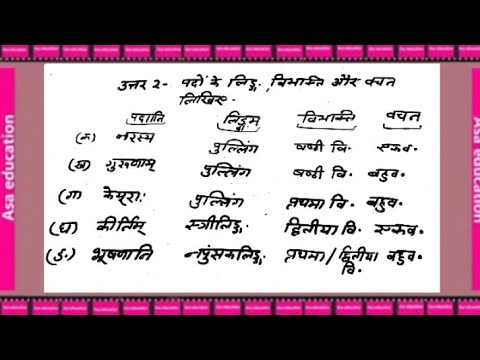 Asa education
उत्तर 2- पदों के लिङ्ग, विभक्ति और वचन
लिखिए-
पदानि लिङ्गम् विभक्ति वचन
(क) नरस्य पुल्लिंग षष्ठी वि. एकव.
(ख) गुरूणाम् पुल्लिंग षष्ठी वि. बहुव.
(ग) केयूराः पुल्लिंग प्रथमा वि. बहुव.
(घ) कीर्तिम् स्त्रीलिङ्ग. द्वितीया वि. एकव.
(ङ) भूषणानि नपुंसकलिङ्ग. प्रथमा/द्वितीया बहुव.
वि.
Asa education